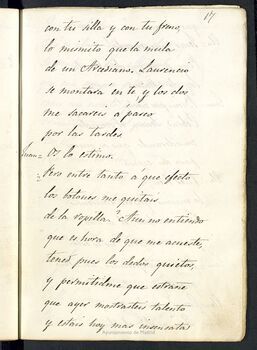 17
con tu silla y con tu freno,
lo mismito que la mula
de un Arcediano. Laurencio
se montará en tí y los dos
me sacareis á paseo
por las tardes
Juan = Os lo estimo.
Pero entre tanto á que efecto
los botones me quitais
de la ropilla? Aun no entiendo
que es hora de que me acueste,
tened pues los dedos quietos,
y permitidme que estrañe
que ayer mostrasteis talento
y estais hoy mas insensata
Ayuntamiento de Madrid